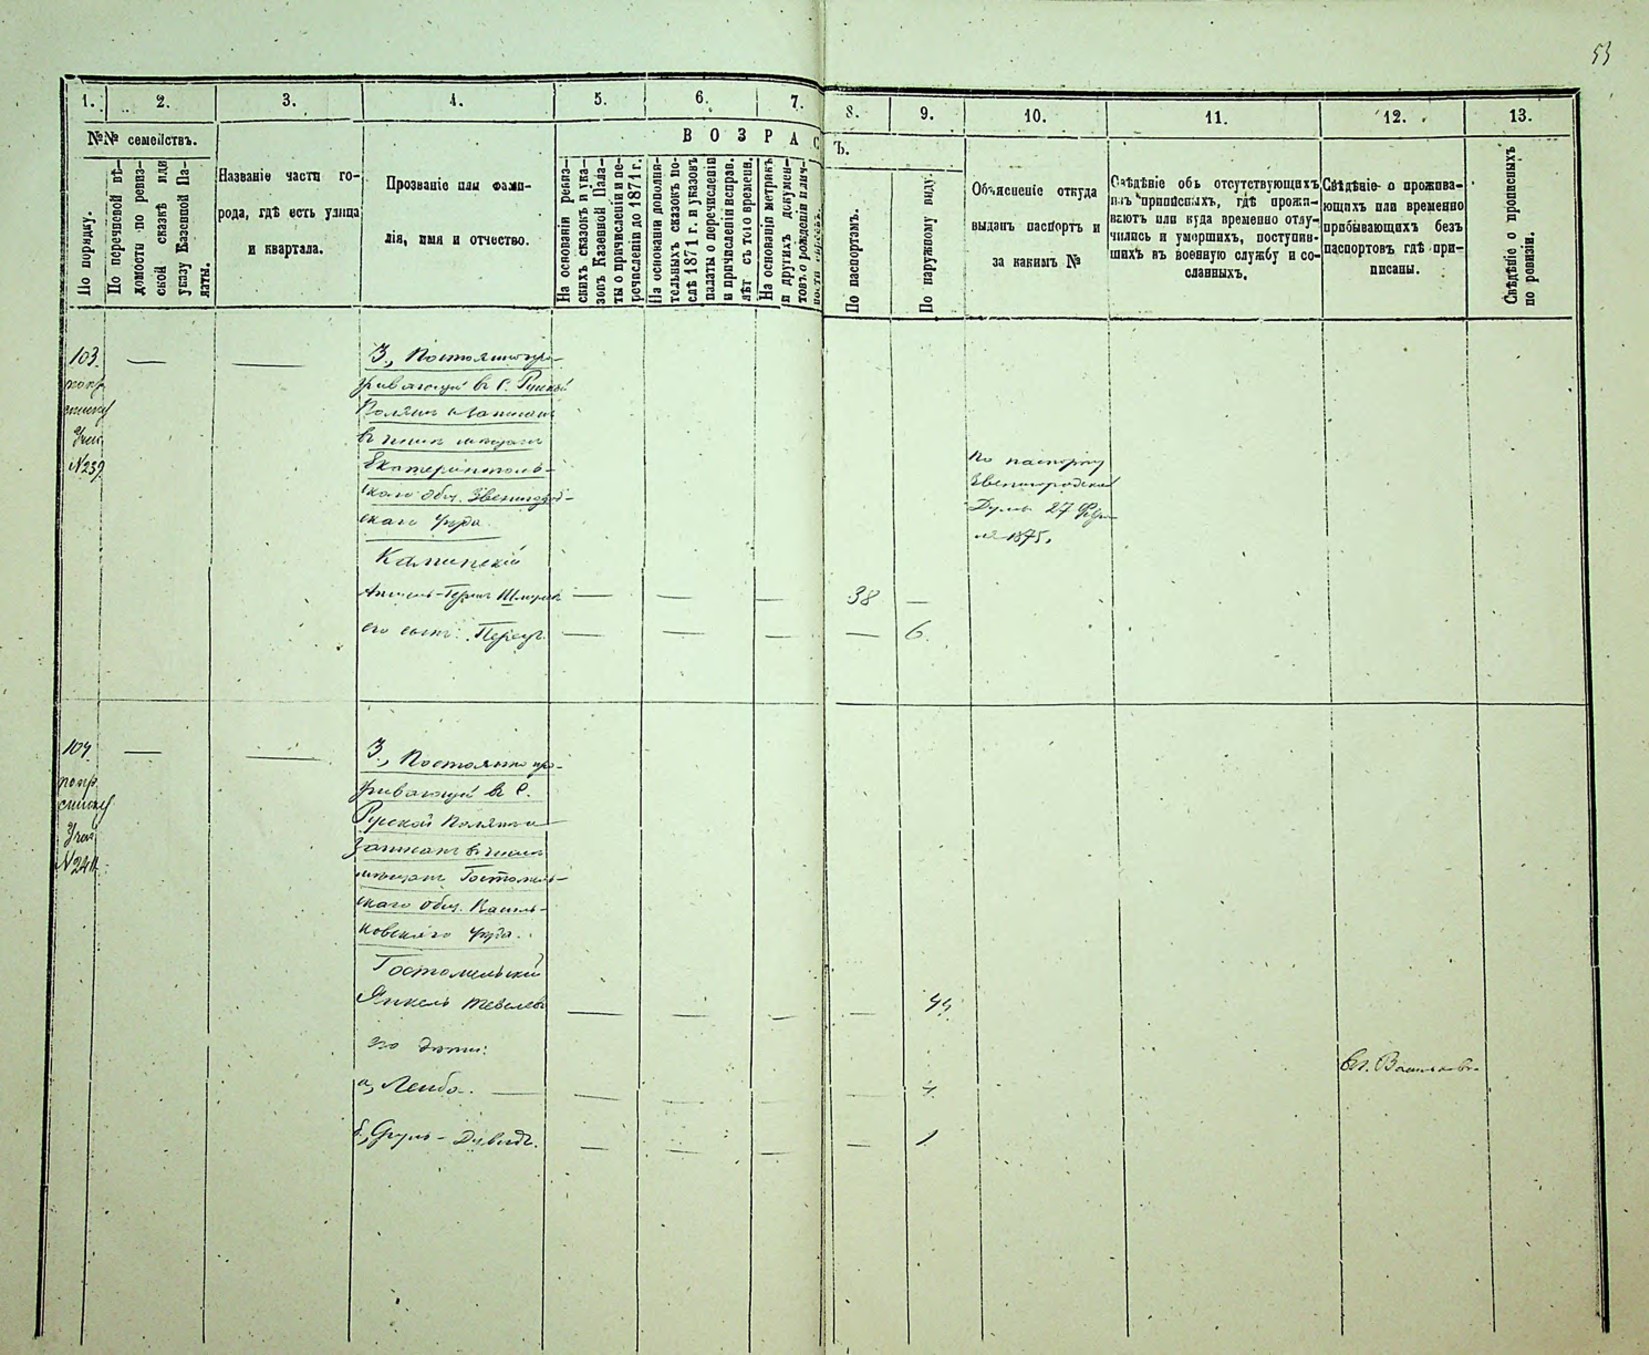 53
1. 2. 3. 4. 5. 6. 7. 8. 9. 10. 11. 12. 13.
№№ семействъ.
По порядку.
По перечневой вѣ-
домости по ревиз-
ской сказкѣ или
указу Казенной Па-
латы.
Названіе части го-
рода, гдѣ есть улица
и квартала.
Прозваніе или фами-
лія, имя и отчество.
ВОЗРАС
Ъ.
На основаніи ревиз-
скихъ сказокъ и ука-
зовъ Казенной Пала-
ты о причисленіи и пе-
речисленіи до 1871 г.
На основаніи дополни-
тельныхъ сказокъ по-
слѣ 1871 г. и указовъ
палаты о перечисленіи
и причисленіи исправ.
лѣт съ того времени.
На основаніи метрикъ
и другихъ докумен-
товъ о рожденіи и лич-
По паспортамъ.
По наружному виду.
Объясненіе откуда
выданъ паспортъ и
за какимъ №
Свѣдѣніе объ отсутствующихъ
изъ приписныхъ, гдѣ прожи-
ваютъ или куда временно отлу-
чились и умершихъ, поступив-
шихъ въ военную службу и со-
сланныхъ.
Свѣдѣніе о прожива-
ющихъ или временно
прибывающихъ безъ
паспортовъ гдѣ при-
писаны.
Свѣдѣніе о прописныхъ
по ревизіи.
103.
по пр.
списку
№ 239
3., Постоянно про-
живающій въ С. Руской
Полянѣ записанъ
въ числѣ мѣщанъ
Екатеринополь-
скаго общ. Звенигород-
скаго уѣзда
Каминскій
его сынъ: Персуъ.
38
6.
По паспорту
Звенигородской
Думы 27 Февра-
ля 1875.
104
по пр.
списку
№ 244
3., Постоянно про-
живающій въ С.
Руской Полянѣ
записанъ въ числѣ
мѣщанъ Гостомель-
скаго общ. Василь-
ковскаго уѣзда.
Гостомельскій
Янкель Тевелевъ
его дѣти:
а, Лейба.
б, Сруль-Дувидъ.
44
4.
1